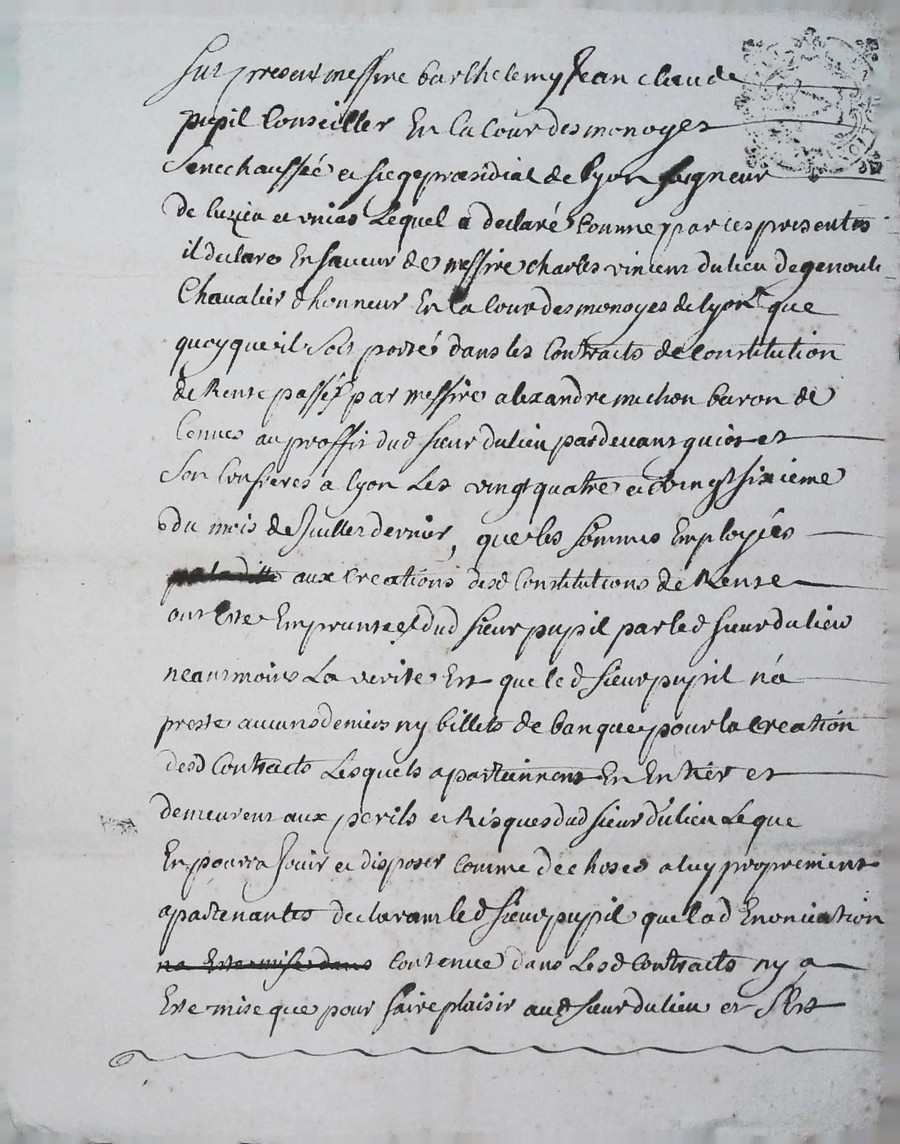 Fut present messire barthelemy Jean claude
pupil Conseiller En la Cour des monoyes
Senechaussée et siege presidial de lyon seigneur
De et Lequel a declaré Comme par ces presentes
il declare En faveur de messire charles vincent dulieu de genouli
Chavalier dhonneur En la Cour des monoyes de lyon que
quoy que il soit porté dans les Contracts de Constitution
de Rente passés par messire alexandre michon baron de
au proffit dud sieur dulieu pardevant guiot et
Son Confrere a lyon Les vingt quatre et vingt sixieme
du mois de Juillet dernier, que les sommes Employées
aux creations desd Constitutions de Rente
ont Esté Empruntées dud sieur pupil par led sieur dulieu
neantmoins La verité Est que led sieur pupil n'a
presté aucuns deniers ny billets de banque pour la creation
desd Contracts Lesquels apartiennent En Entier et
demeurent aux perils et Risques dud sieur dulieu Leque
En pourra Jouir et disposer comme de choses a luy proprement
apartenantes declarant led sieur pupil que lad Enonciation
na Esté mise dans contenue dans Lesd Contracts ny a
Esté mise que pour faire plaisir aud sieur dulieu et s'Est